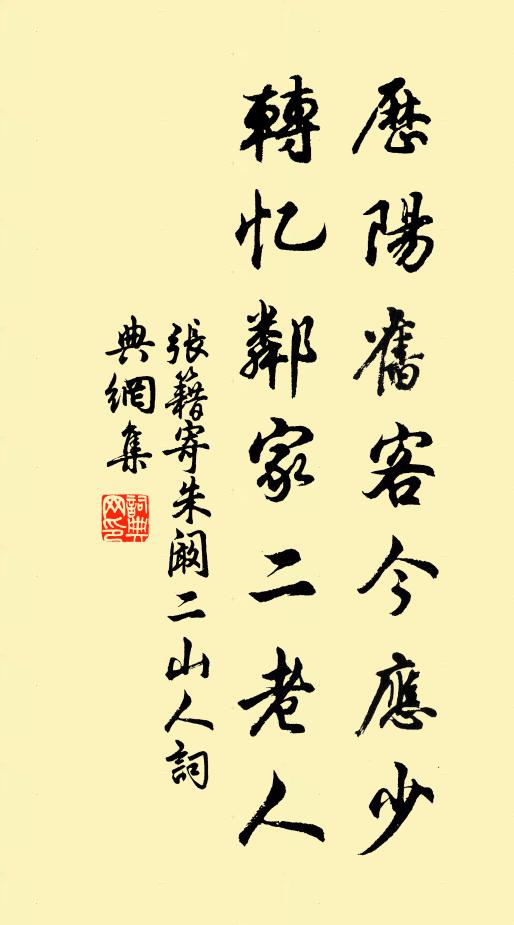 歷陽舊客今應少
轉忆鄰家二老人
張籍寄朱闞二山人詞
典網集
詞典
网印